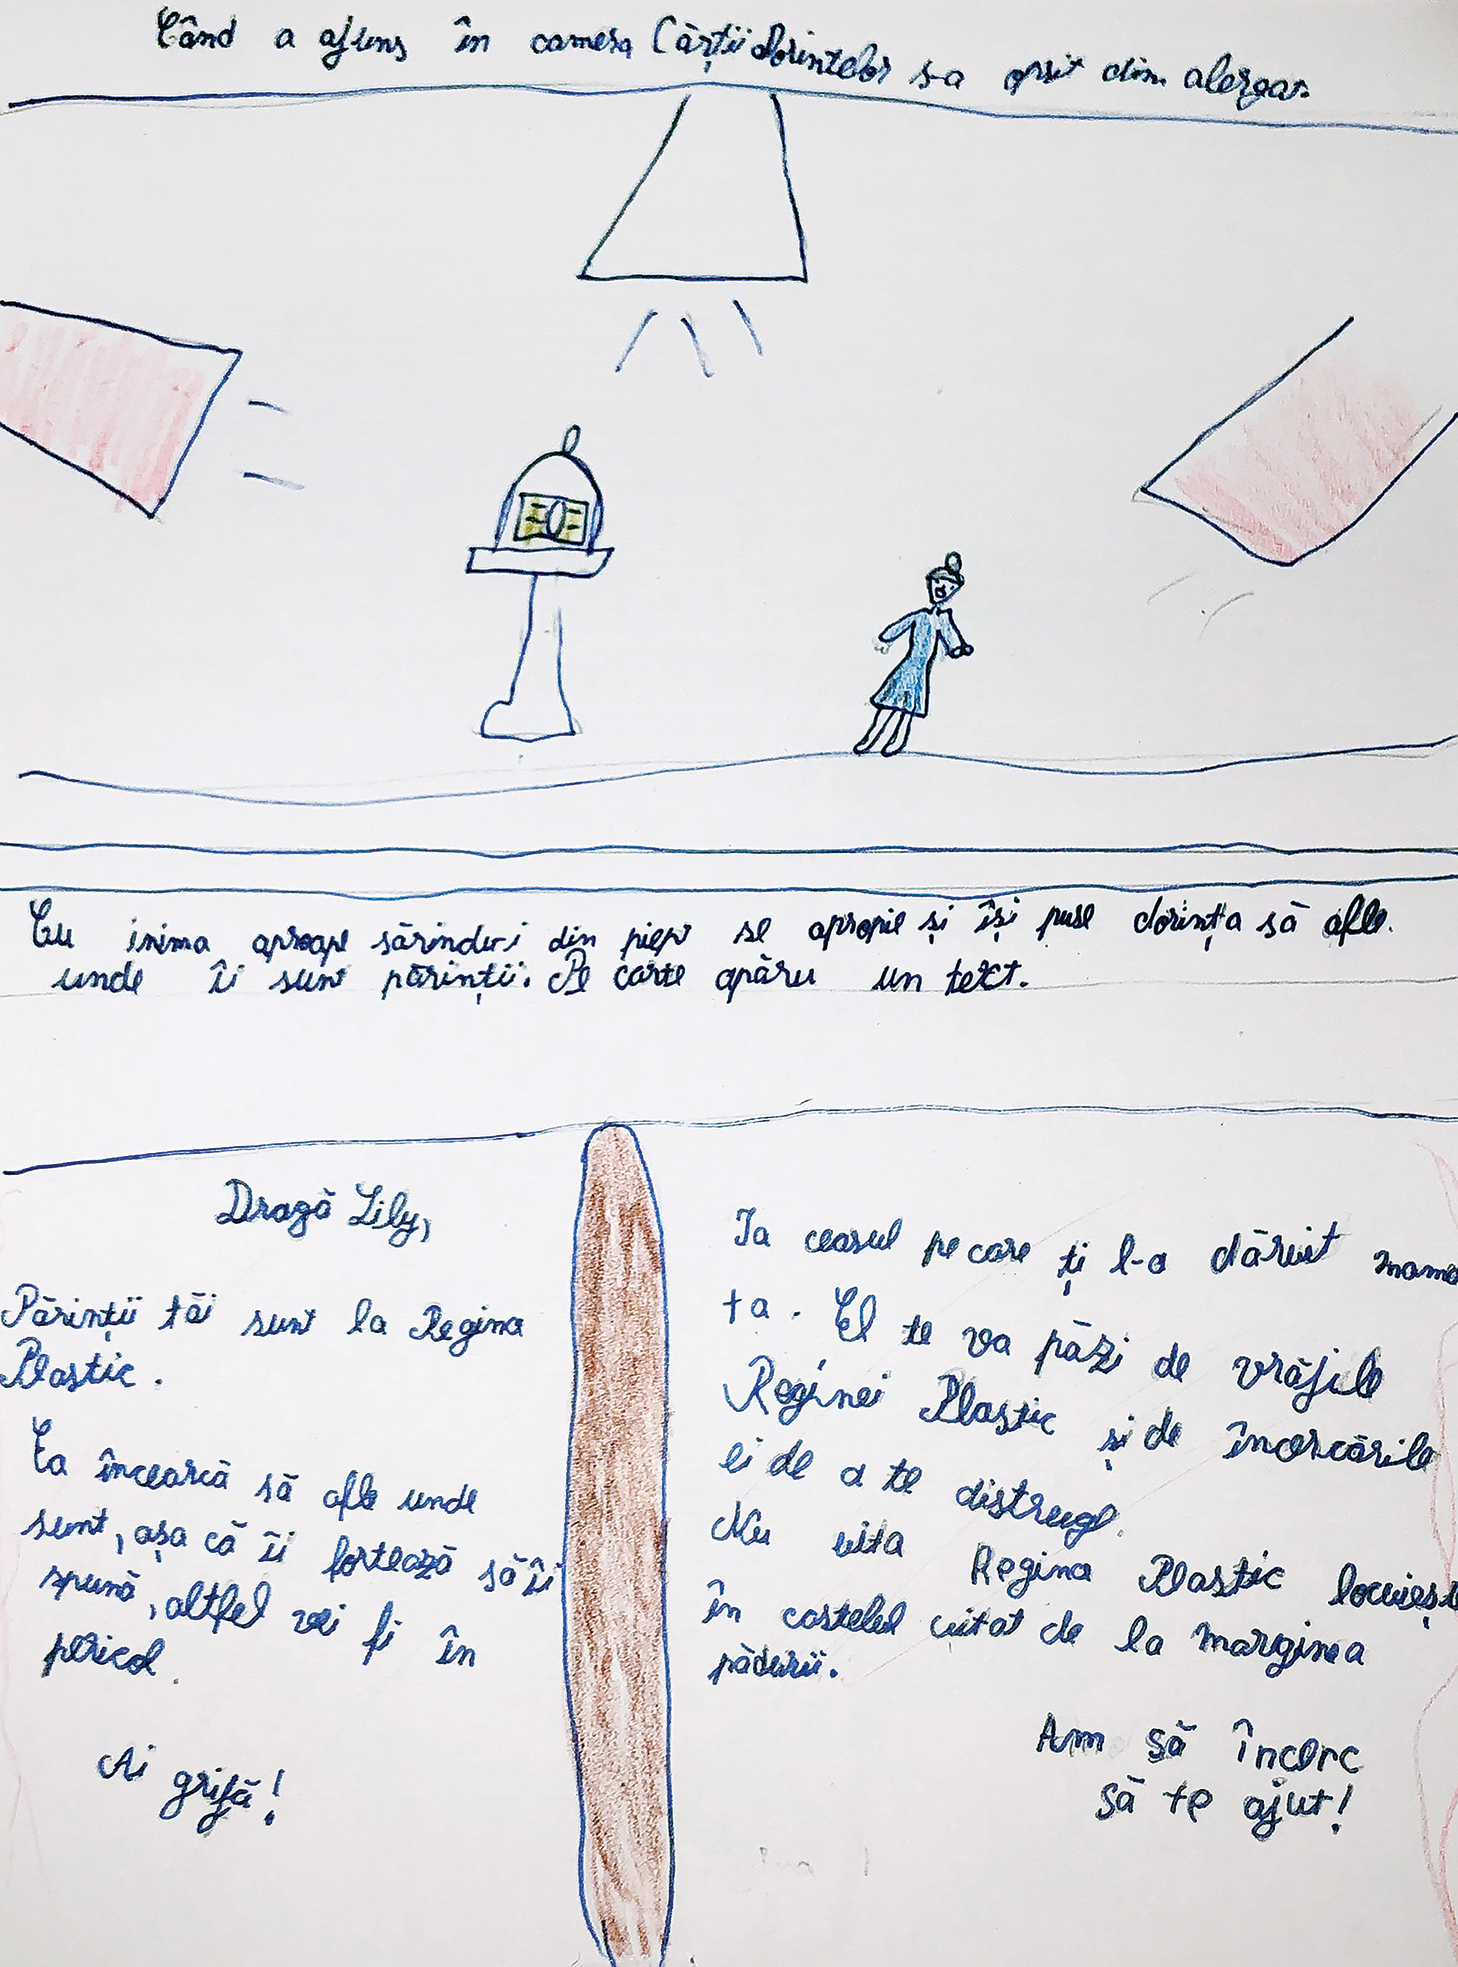 Când a ajuns în camera Cărții dorintelor s-a oprit din alergat.
Cu inima aproape sărindu-i din piept se apropie și își puse dorința să afle
unde îi sunt părinții. Pe carte apăru un text.
Dragă Lily,
Părinții tăi sunt la Regina
Plastic.
Ea încearcă să afle unde
sunt, așa că îi fortează să îi
spună, altfel vei fi în
pericol.
Ai grijă!
Ia ceasul pe care ți l-a dăruit mama
ta. El te va păzi de vrăjile
Reginei Plastic și de încercările
ei de a te distruge.
Nu uita Regina Plastic locuiește
în castelul uitat de la marginea
pădurii.
Am să încerc
să te ajut!